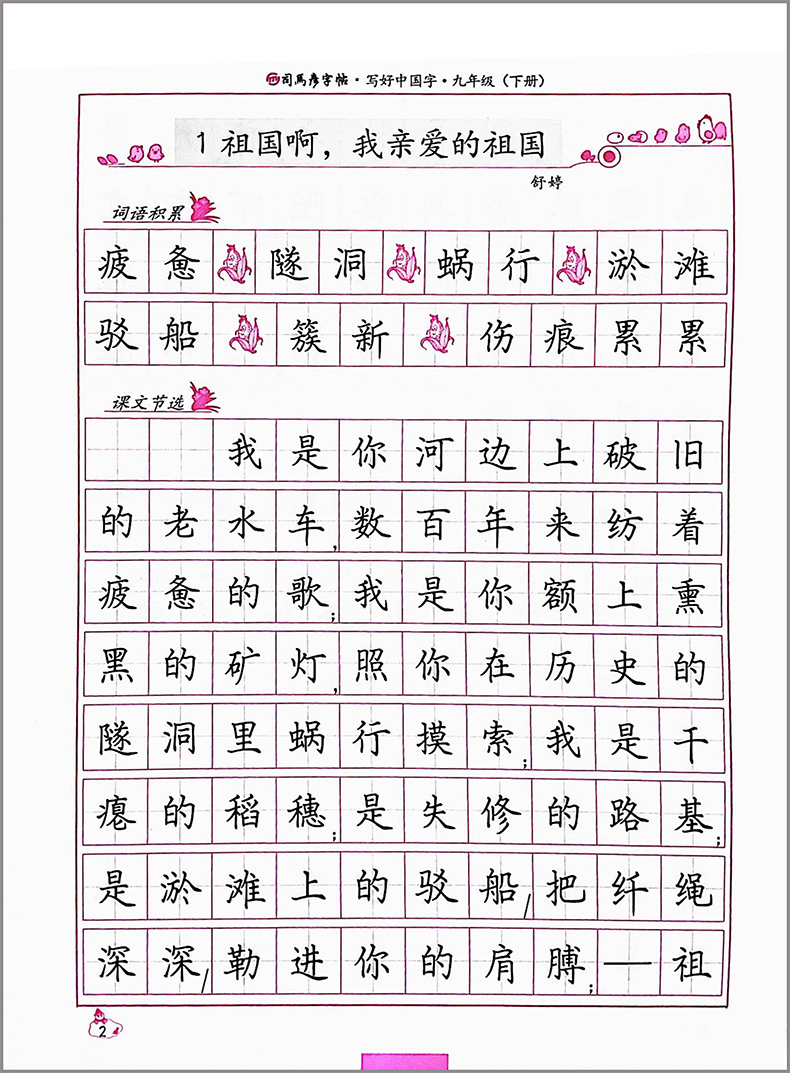 司马彦字帖·写好中国字·九年级(下册)
1 祖国啊，我亲爱的祖国
舒婷
词语积累
疲惫 隧洞 蜗行 淤滩
驳船 簇新 伤痕累累
课文节选
我是你河边上破旧
的老水车,数百年来纺着
疲惫的歌;我是你额上熏
黑的矿灯,照你在历史的
隧洞里蜗行摸索;我是干
瘪的稻穗;是失修的路基;
是淤滩上的驳船/把纤绳
深深/勒进你的肩膊;—祖
2